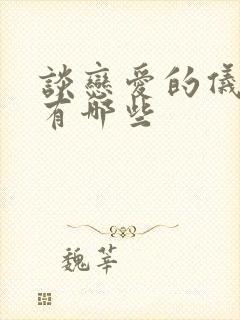 談戀愛的儀
有哪些
魏莘